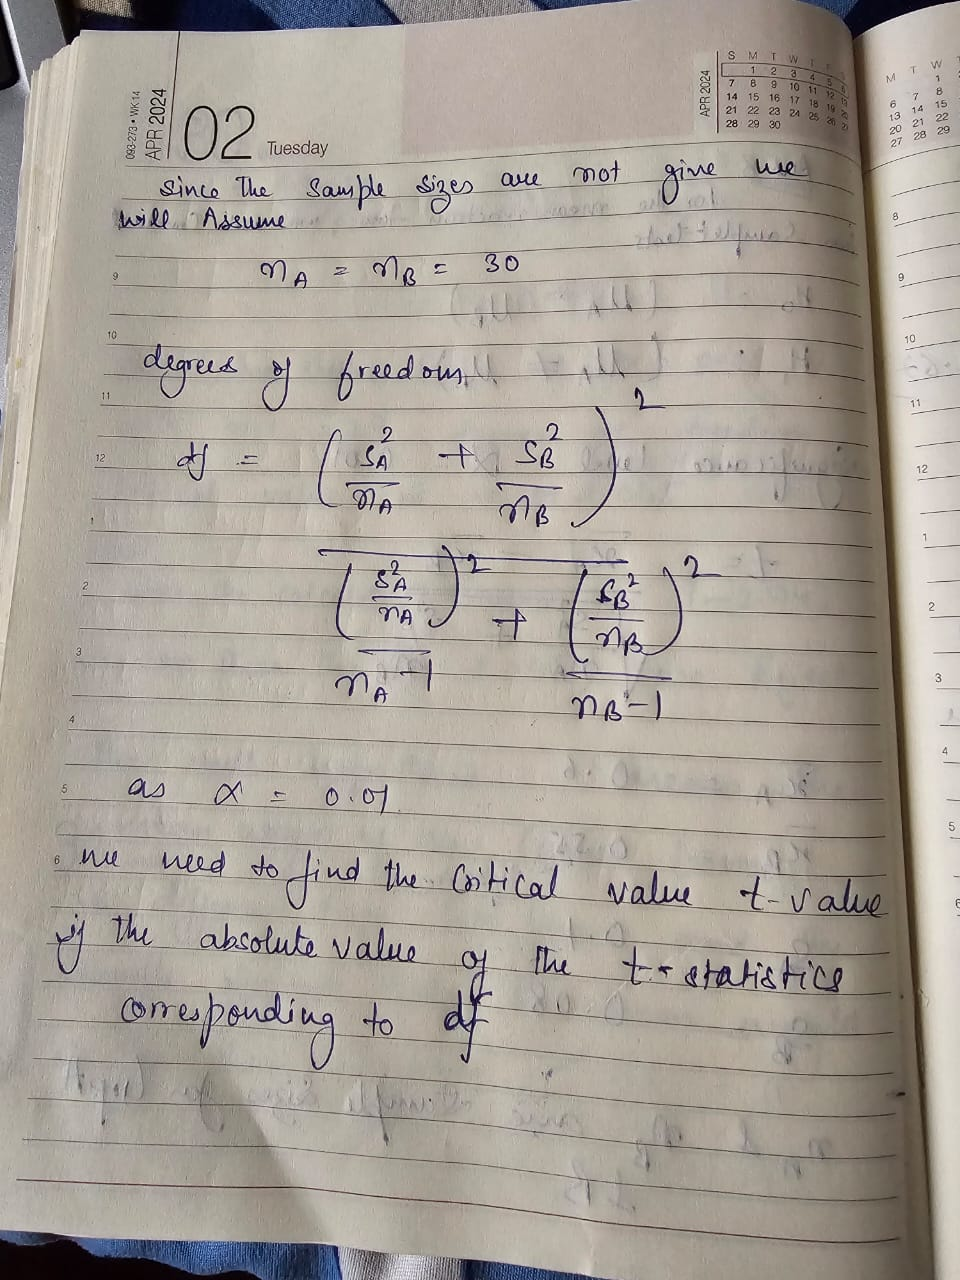 093-273 • WK 14
APR 2024
02 Tuesday
APR 2024
S M T W T F S
1 2 3 4 5 6
7 8 9 10 11 12 13
14 15 16 17 18 19 20
21 22 23 24 25 26 27
28 29 30
M T W
1
6 7 8
13 14 15
20 21 22
27 28 29
since The Sample sizes are not give we
will Assume
8
n_A = n_B = 30
9
10
degrees of freedom
11
12
df = (s_A^2/n_A + s_B^2/n_B)^2
1
2
(s_A^2/n_A)^2/(n_A-1) + (s_B^2/n_B)^2/(n_B-1)
3
4
5
as α = 0.01
6
we need to find the Critical value t-value
if the absolute value of the t-statistics
corresponding to df
8
9
10
11
12
1
2
3
4
5
6